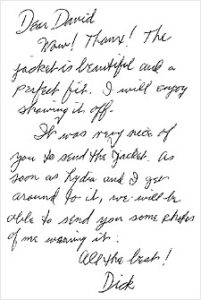 Dear David
Wow! Thanx! The
jacket is beautiful and a
perfect fit. I will enjoy
showing it off.
It was very nice of
you to send the jacket. As
soon as Lydia and I get
around to it, we will be
able to send you some photos
of me wearing it.
All the best!
Dick